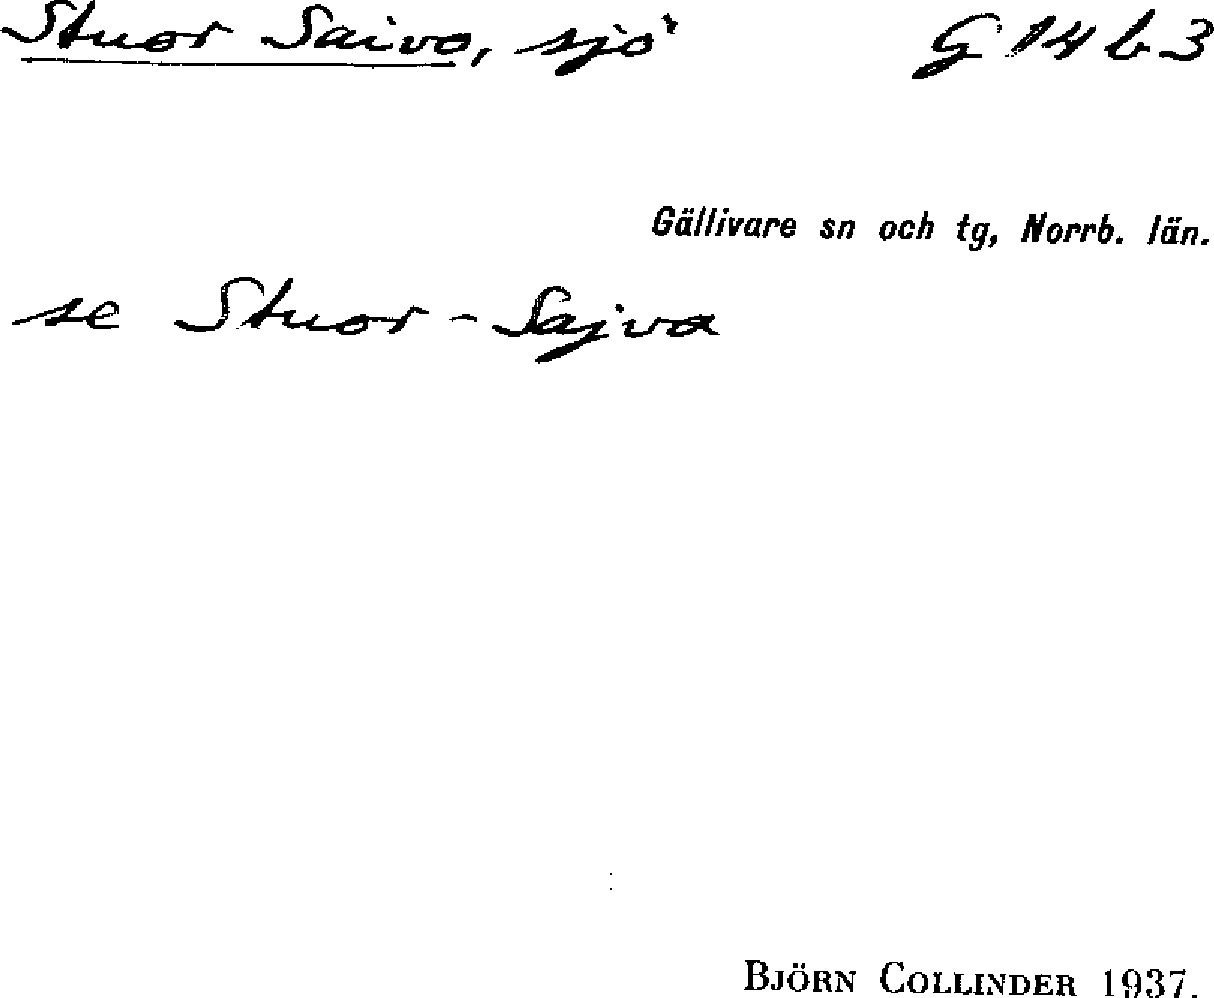 Stuor Saivo, sjö G 14 b 3
Gällivare sn och tg, Norrb. län.
se Stuor-Sajva
BJÖRN COLLINDER 1937.